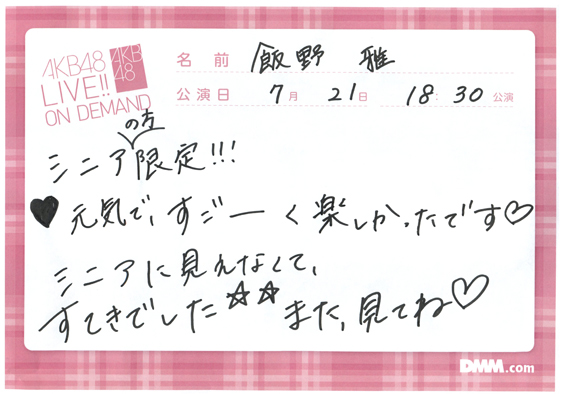 AKB48
LIVE!!
ON DEMAND
AKB
48
名前 飯野 雅
公演日 7月 21日 18:30公演
の方
シニア限定!!!
♥元気で、すごーく楽しかったです♡
シニアに見えなくて、
すてきでした☆☆また、見てね♡
DMM.com